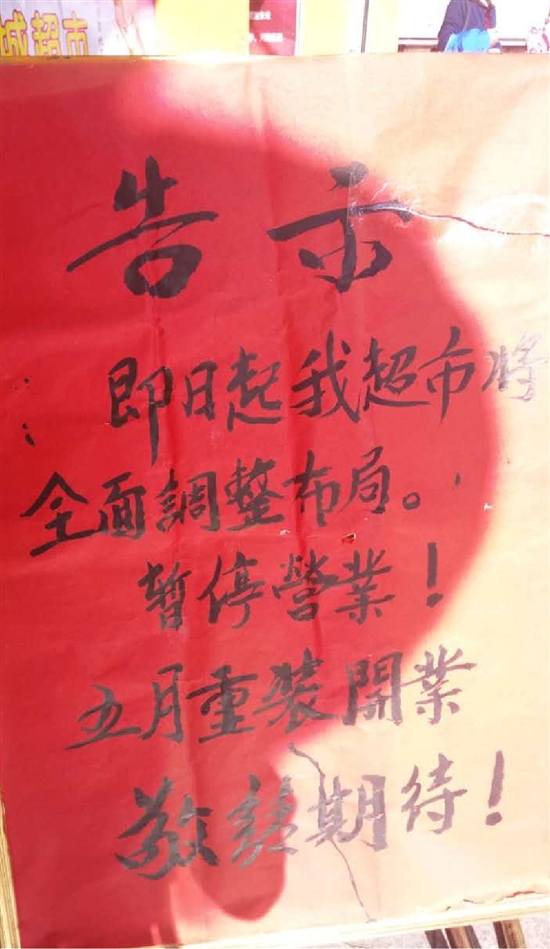 城超市
告示
即日起我超市将
全面調整布局。
暂停營業！
五月重装開業
敬請期待！